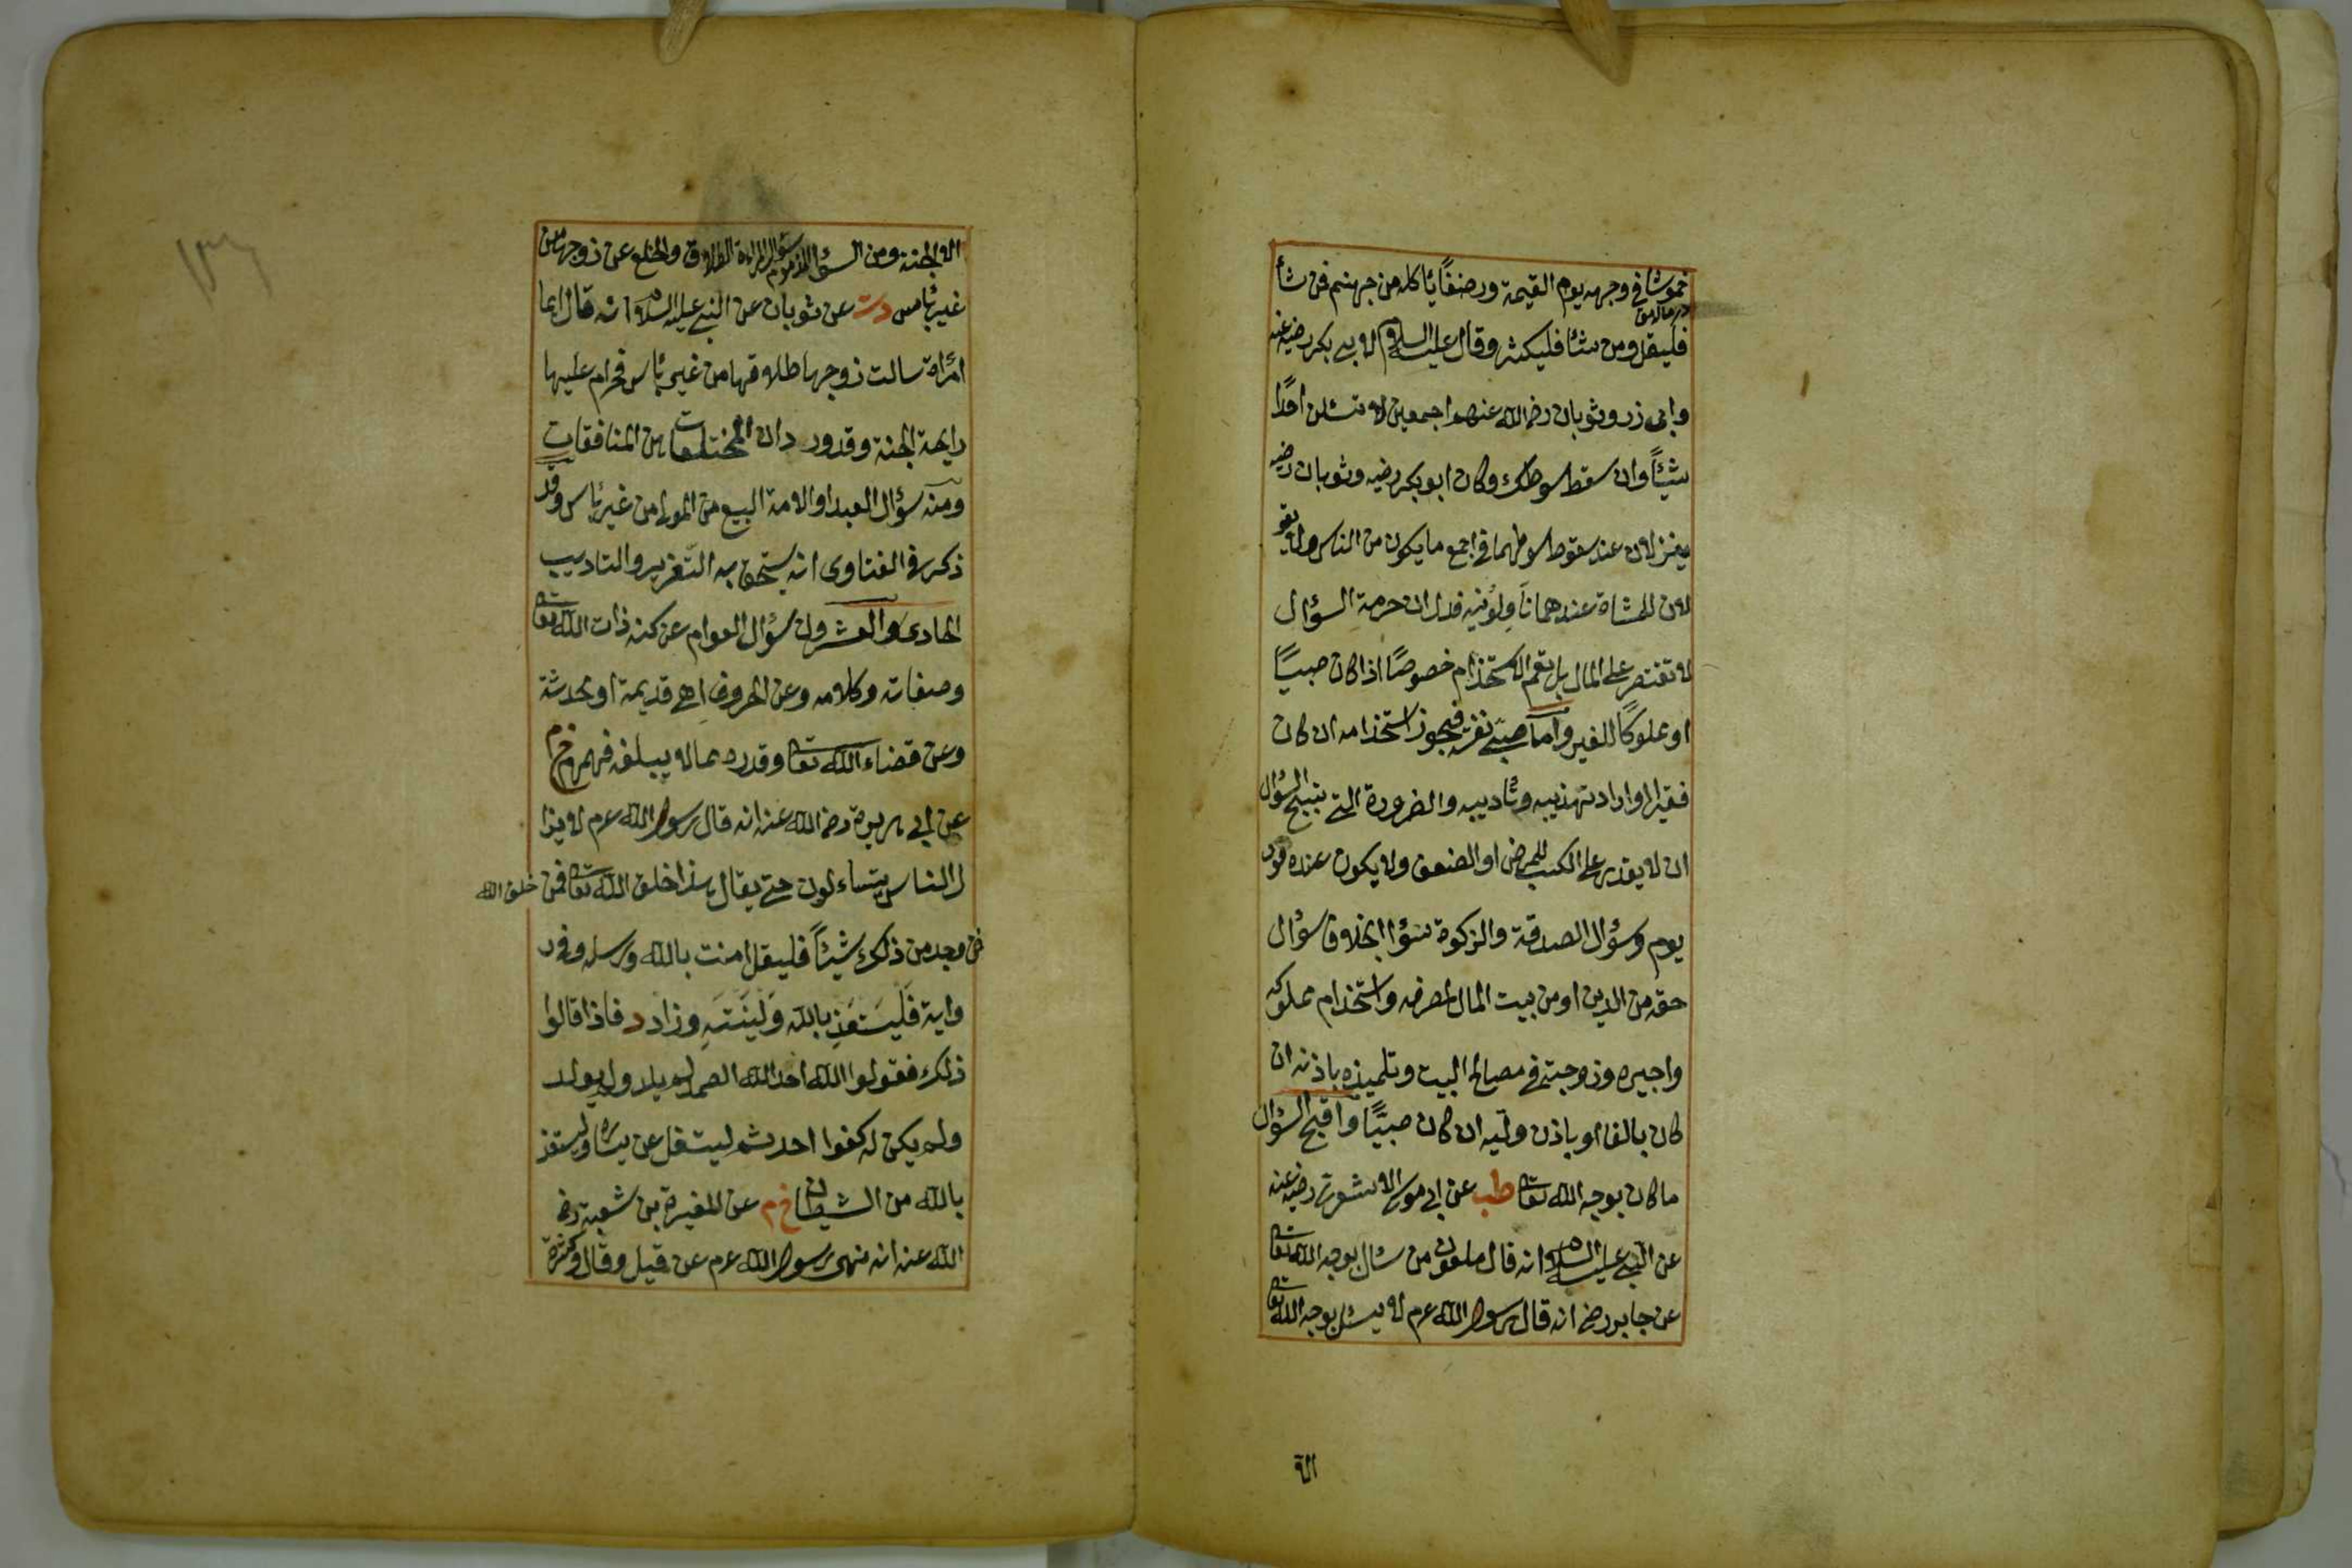 خموشا في وجهه يوم القيمة ورضفًا يأكله من جهنم فمن شأ
فليقل ومن شأ فليكثر وقال عليه السلام لابي بكر رضيه عنه
وابى ذر وثوبان رضى الله عنهم اجمعين لا تسئلن احدًا
شيئًا وان سقط سوطك وكان ابو بكر رضيه وثوبان رضيه
ينزلان عند سقوط سوطهما في اجمع ما يكون من الناس ولا يقو
لان للمشاة عندهما ناولونيه فدل ان حرمة السؤال
لا تقتصر على المال بل تعم الاستخدام خصوصًا اذا كان صبيًا
او مملوكًا للغير واما صبي نفسه فيجوز استخدامه ان كان
فقيرا او اراد تهذيبه وتأديبه والضرورة التي تبيح السؤال
ان لا يقدر على الكسب للمرض او الضعف ولا يكون عنده قوت
يوم وسؤال الصدقة والزكوة سواء بخلاف سؤال
حقه من الدين او من بيت المال لمصرفه واستخدام مملوكه
واجيره وزوجته في مصالح البيت وتلميذه باذنه ان
كان بالغا او باذن وليه ان كان صبيًا واقبح السؤال
ما كان بوجه الله تعالى طب عن ابي موسى الاشعرى رضيه عنه
عن النبي عليه السلام انه قال ملعون من سأل بوجه الله تعالى
عن جابر رضى انه قال رسول الله عرم لا يسئل بوجه الله تعالى
الا
١٣٦
الا الجنة ومن السؤال المذموم سؤال المرأة الطلاق والخلع عن زوجها من
غير بأس دت عن ثوبان عن النبي عليه السلام انه قال ايما
امرأة سالت زوجها طلاقها من غير بأس فحرام عليها
رايحة الجنة وقد ورد ان المختلعات هن المنافقات
ومنه سؤال العبد او الامة البيع من المولى من غير بأس وقد
ذكر في الفتاوى انه يستحق به التعزير والتاديب
الحادى والعشرون سؤال العوام عن كنه ذات الله تعالى
وصفاته وكلامه وعن الحروف اهي قديمة او محدثة
وعن قضاء الله تعالى وقدره مما لا يبلغه فهمهم خ م
عن ابي هريرة رضى الله عنه انه قال رسول الله عرم لا يزا
ل الناس يتساءلون حتى يقال هذا خلق الله تعالى فمن خلق الله
فمن وجد من ذلك شيئًا فليقل امنت بالله ورسله وفى ر
واية فَليَستَعِذ بالله وَليَنتَهِ وزاد د فاذا قالوا
ذلك فقولوا الله احد الله الصمد لم يلد ولم يولد
ولم يكن له كفوا احد ثم ليتفل عن يساره وليستعذ
بالله من الشيطان خ م عن المغيرة بن شعبة رضى
الله عنه انه نهى رسول الله عرم عن قيل وقال وكثرة